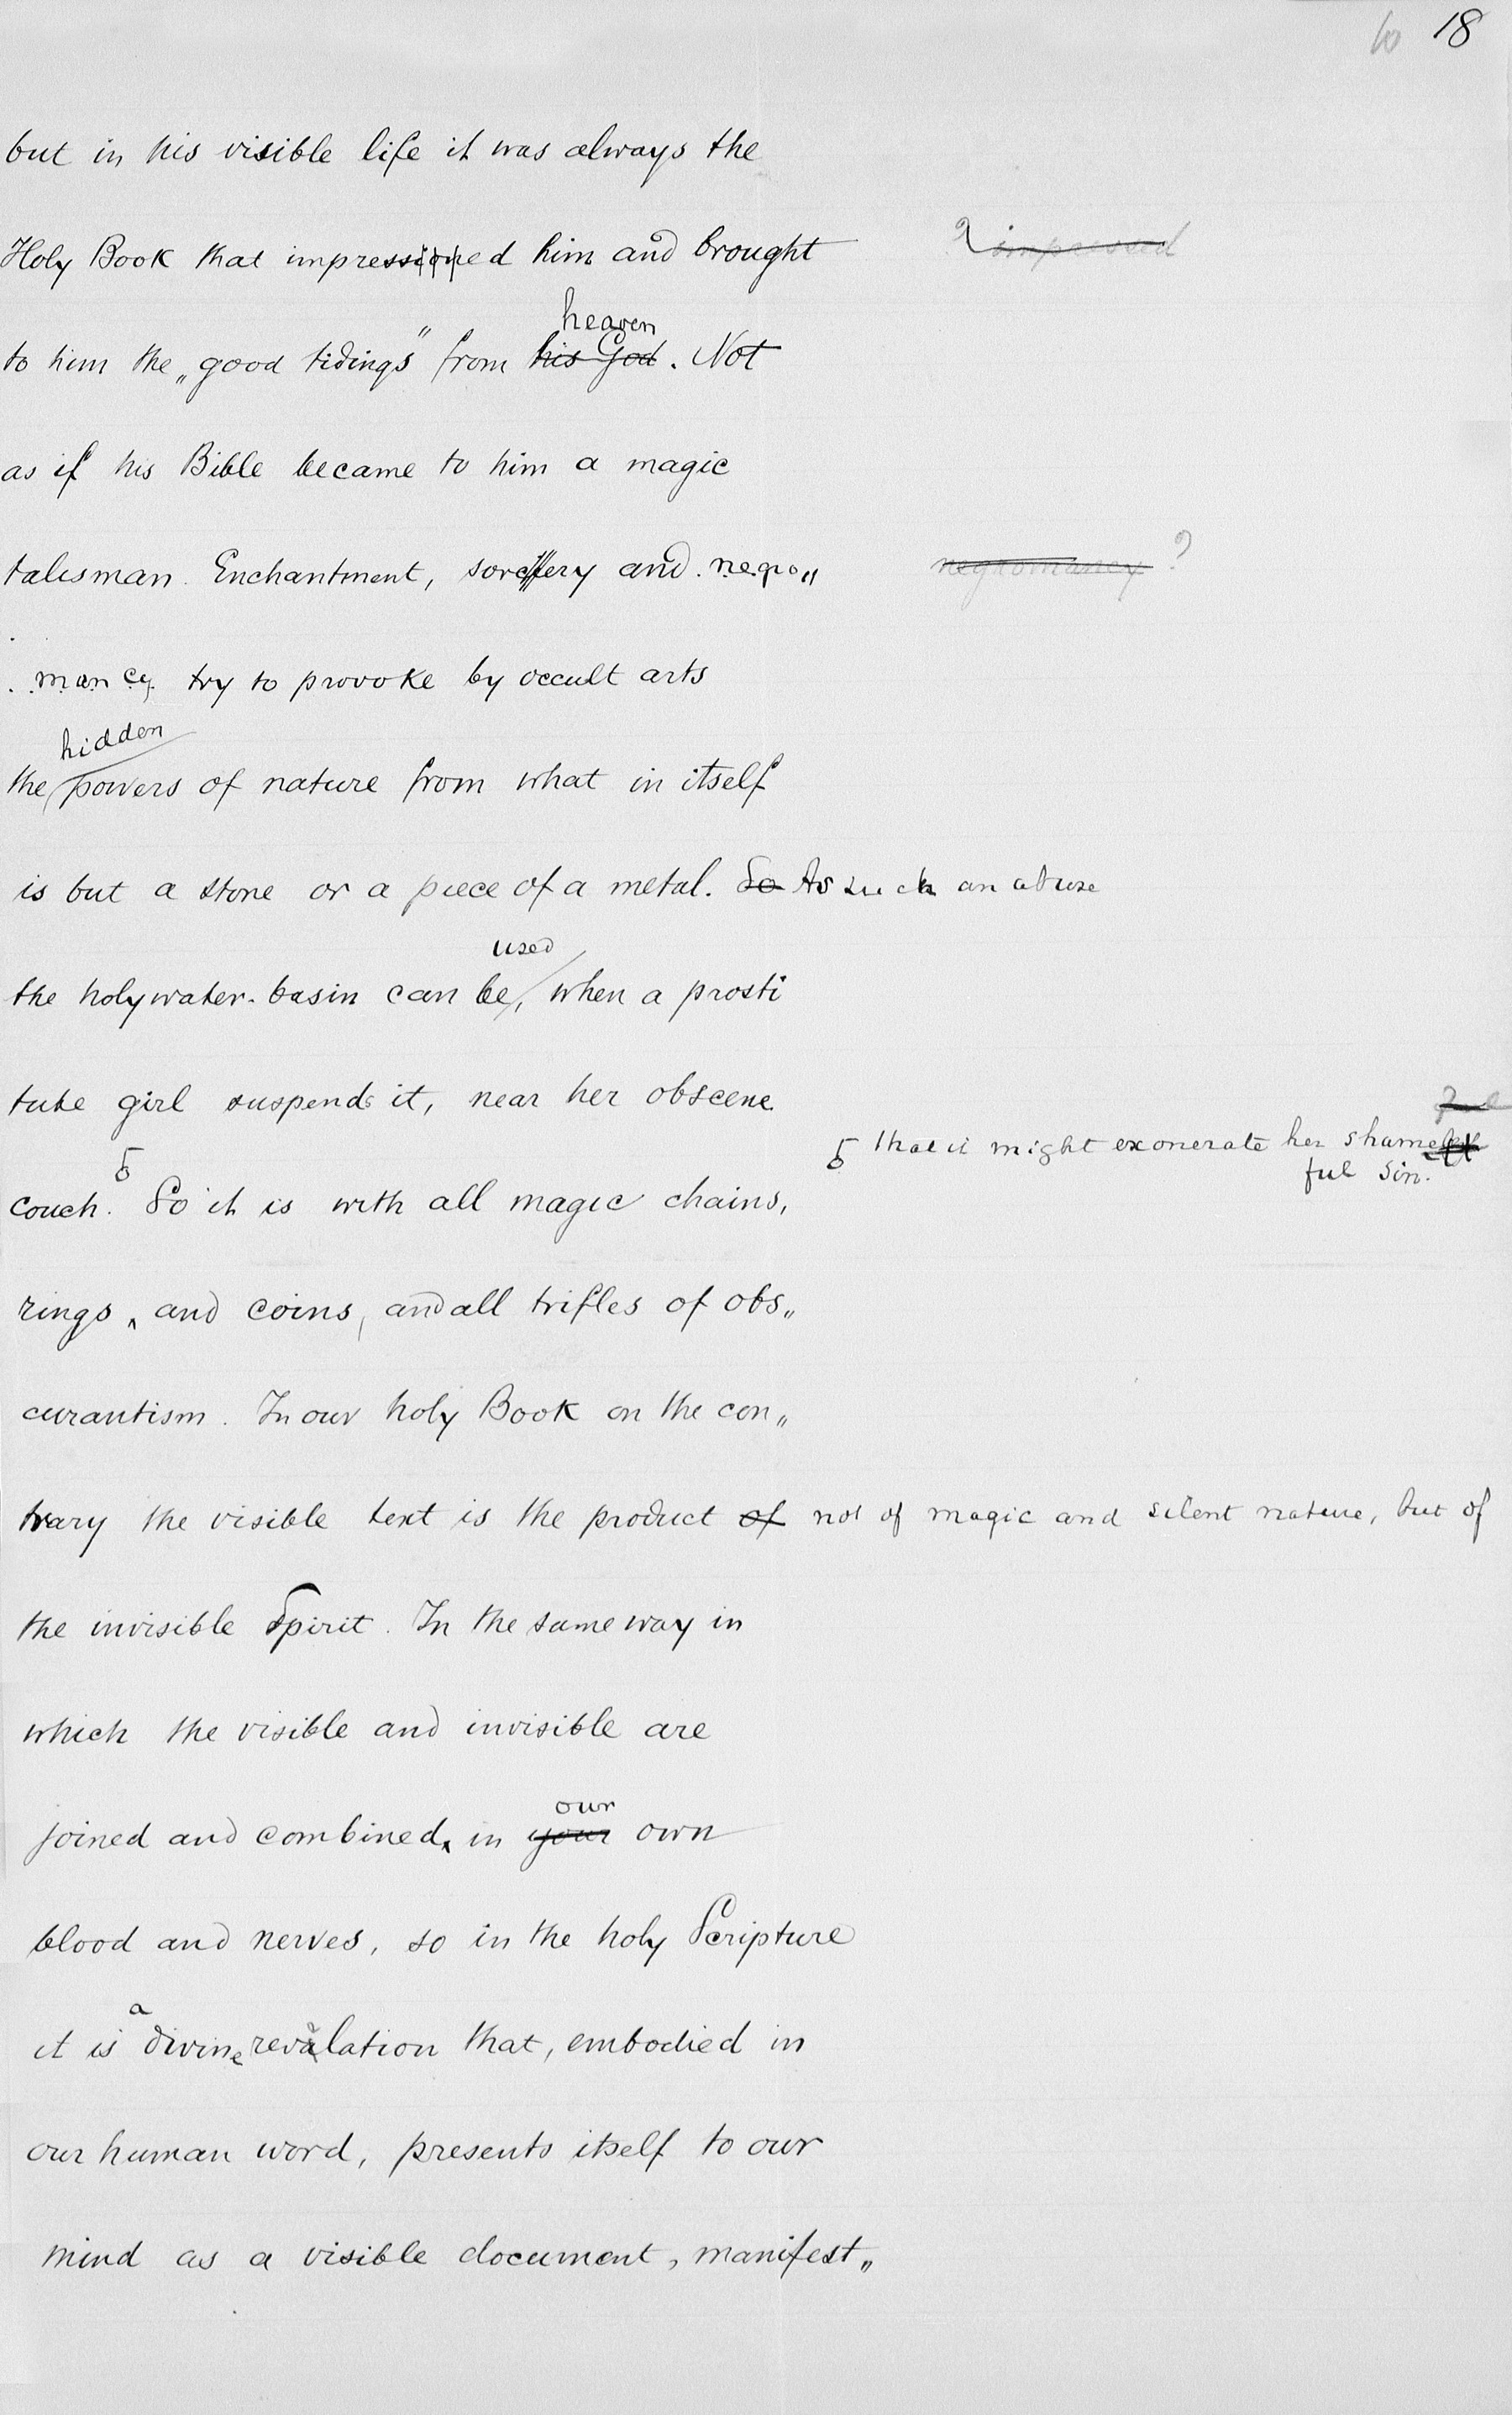 10 18
but in his visible life it was always the
Holy Book that impressioned him and brought
? impressed
heaven
to him the „good tidings" from his God. Not
as if his Bible became to him a magic
talisman. Enchantment, sorcery and negro„
negromancy ?
mancy try to provoke by occult arts
hidden
the powers of nature from what in itself
is but a stone or a piece of a metal. So As such an abuse
used
the holywater-basin can be, when a prosti
tute girl suspends it, near her obscene
that it might exonerate her shame
ful sin.
couch. So it is with all magic chains,
rings, and coins, and all trifles of obs„
curantism. In our holy Book on the con„
trary the visible text is the product of not of magic and silent nature, but of
the invisible Spirit. In the same way in
which the visible and invisible are
our
joined and combined, in your own
blood and nerves, so in the holy Scripture
a
it is divine revelation that, embodied in
our human word, presents itself to our
mind as a visible document, manifest„